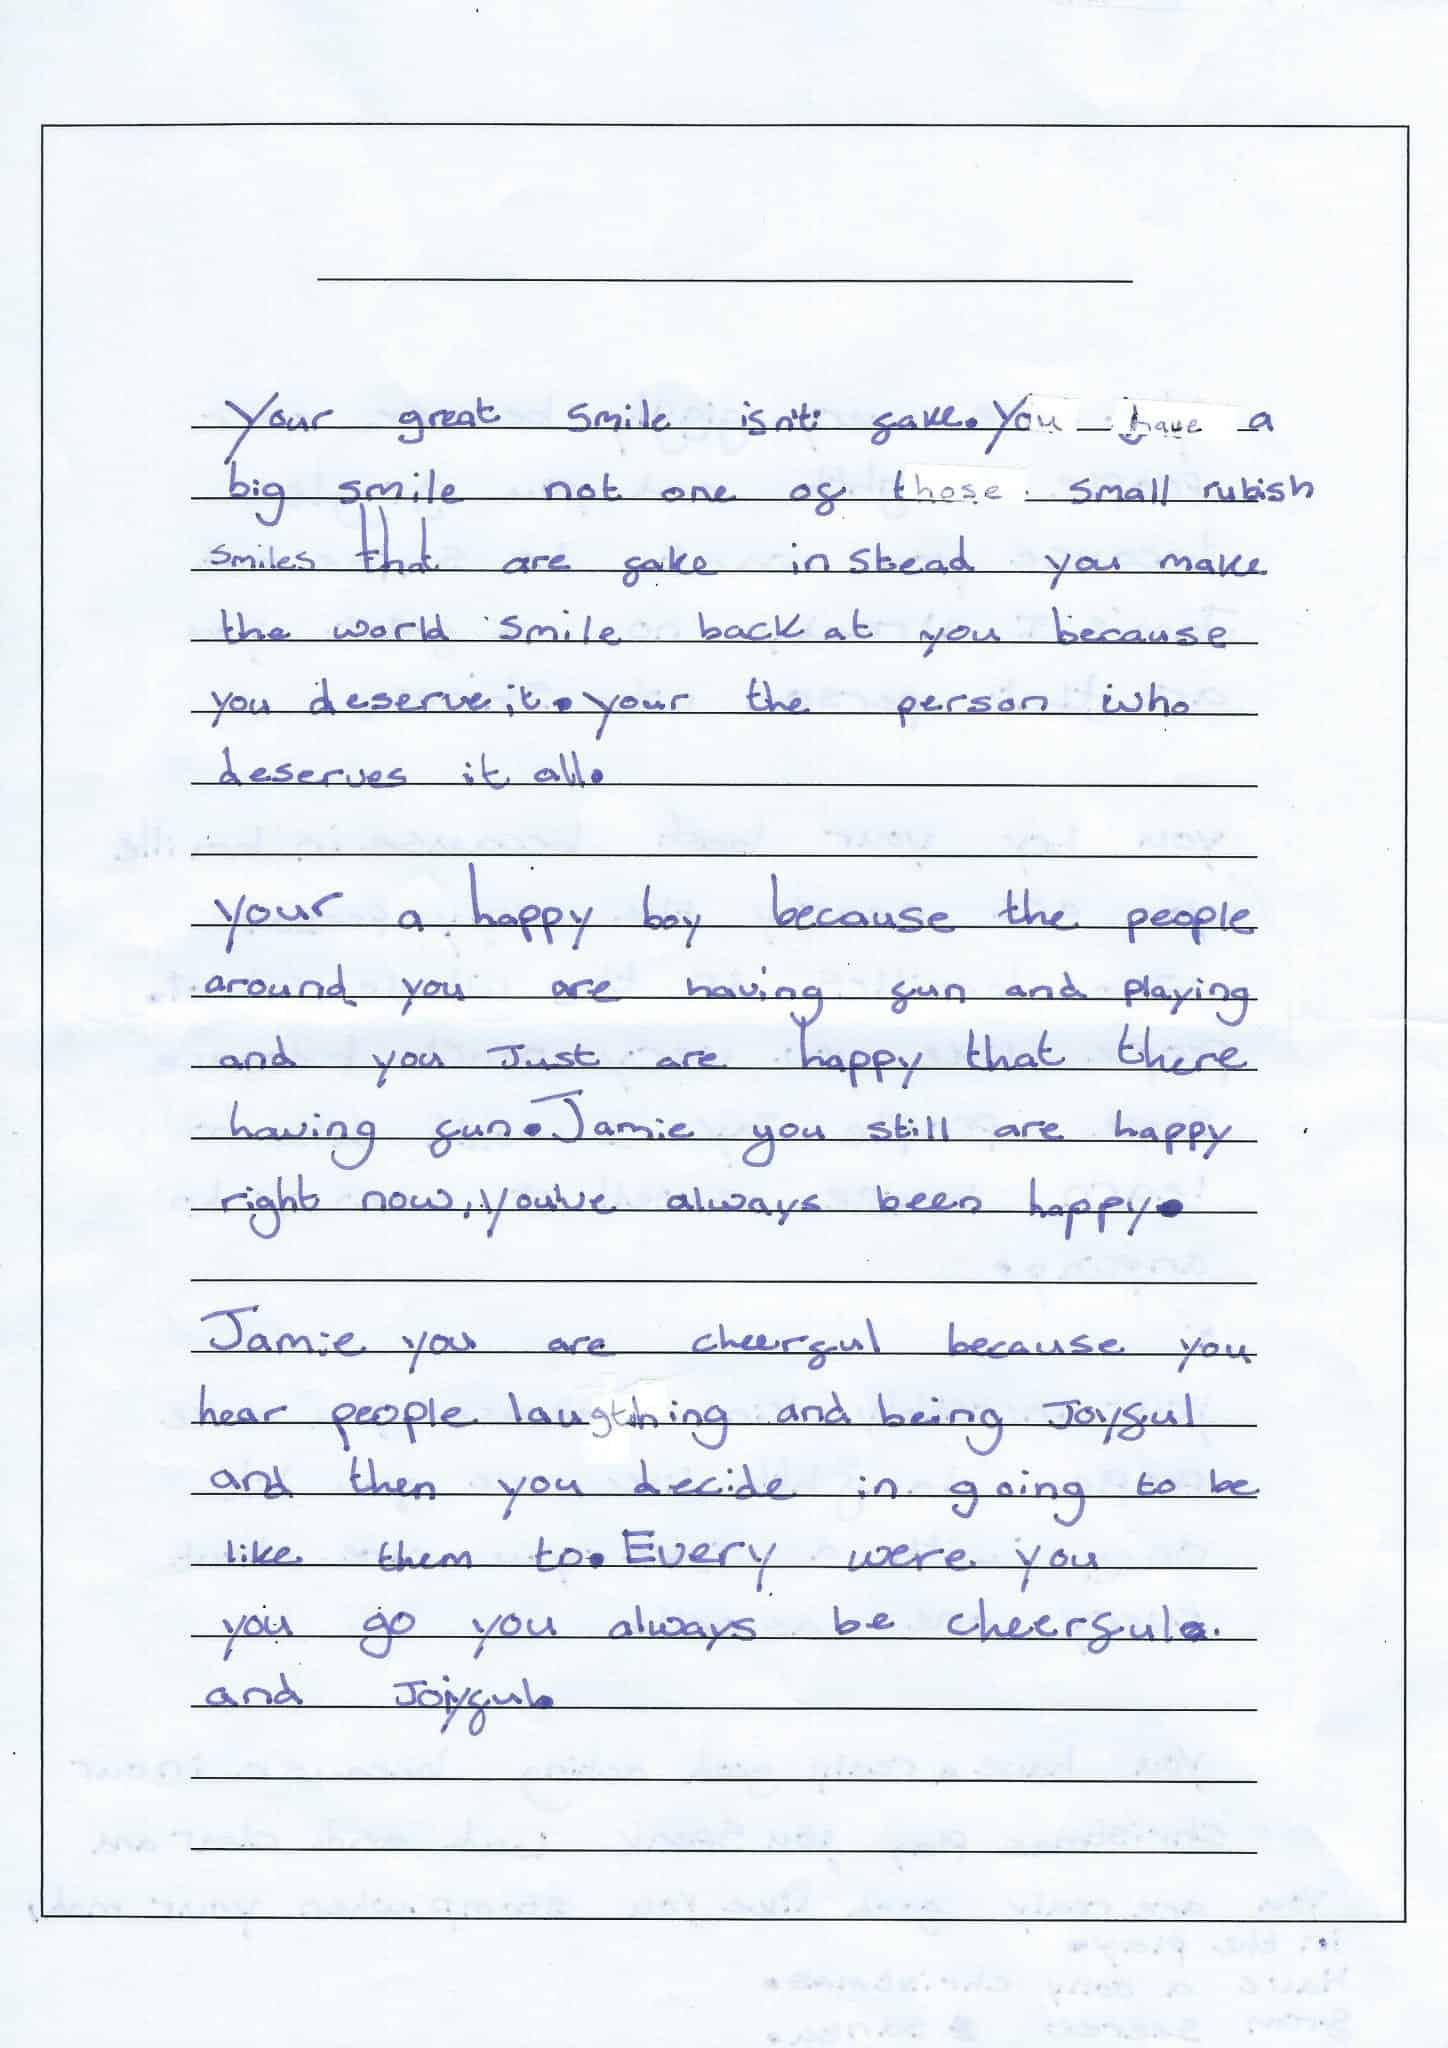 Your great smile isn't fake. You have a
big smile not one of those small rubish
smiles that are fake instead you make
the world smile back at you because
you deserve it. your the person who
deserves it all.
your a happy boy because the people
around you are having fun and playing
and you Just are happy that there
having fun. Jamie you still are happy
right now, you've always been happy.
Jamie you are cheerful because you
hear people laugthing and being Joyful
and then you decide in going to be
like them to. Every were you
you go you always be cheerful.
and Joyful.